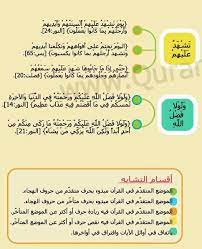 {يَوْمَ تَشْهَدُ عَلَيْهِمْ أَلْسِنَتُهُمْ وَأَيْدِيهِمْ
وَأَرْجُلُهُم بِمَا كَانُوا يَعْمَلُونَ} [النور:24].
{الْيَوْمَ نَخْتِمُ عَلَى أَفْوَاهِهِمْ وَتُكَلِّمُنَا أَيْدِيهِمْ
وَتَشْهَدُ أَرْجُلُهُم بِمَا كَانُوا يَكْسِبُونَ} [يس:65].
{حَتَّى إِذَا مَا جَاءُوهَا شَهِدَ عَلَيْهِمْ سَمْعُهُمْ
وَأَبْصَارُهُمْ وَجُلُودُهُم بِمَا كَانُوا يَعْمَلُونَ} [فصلت:20].
تَشْهَدُ
عَلَيْهِمْ
{وَلَوْلَا فَضْلُ اللَّهِ عَلَيْكُمْ وَرَحْمَتُهُ فِي الدُّنْيَا وَالْآخِرَةِ
لَمَسَّكُمْ فِي مَا أَفَضْتُمْ فِيهِ عَذَابٌ عَظِيمٌ} [النور:14].
{وَلَوْلَا فَضْلُ اللَّهِ عَلَيْكُمْ وَرَحْمَتُهُ مَا زَكَى مِنكُم مِّنْ
أَحَدٍ أَبَدًا وَلَكِنَّ اللَّهَ يُزَكِّي مَن يَشَاءُ} [النور:21].
وَلَوْلَا
فَضْلُ
اللَّهِ
Quran
أقسام التشابه
الموضع المتقدّم في القرآن مبدوء بحرف متقدّم من حروف الهجاء.
الموضع المتقدّم في القرآن مبدوء بحرف متأخّر من حروف الهجاء.
الموضع المتقدّم في القرآن فيه زيادة حرف أو أكثر عن الموضع المتأخّر.
الموضع المتأخّر في القرآن فيه زيادة حرف أو أكثر عن الموضع المتقدّم.
اتفاق في أوائل الآيات وافتراق في أواخرها.